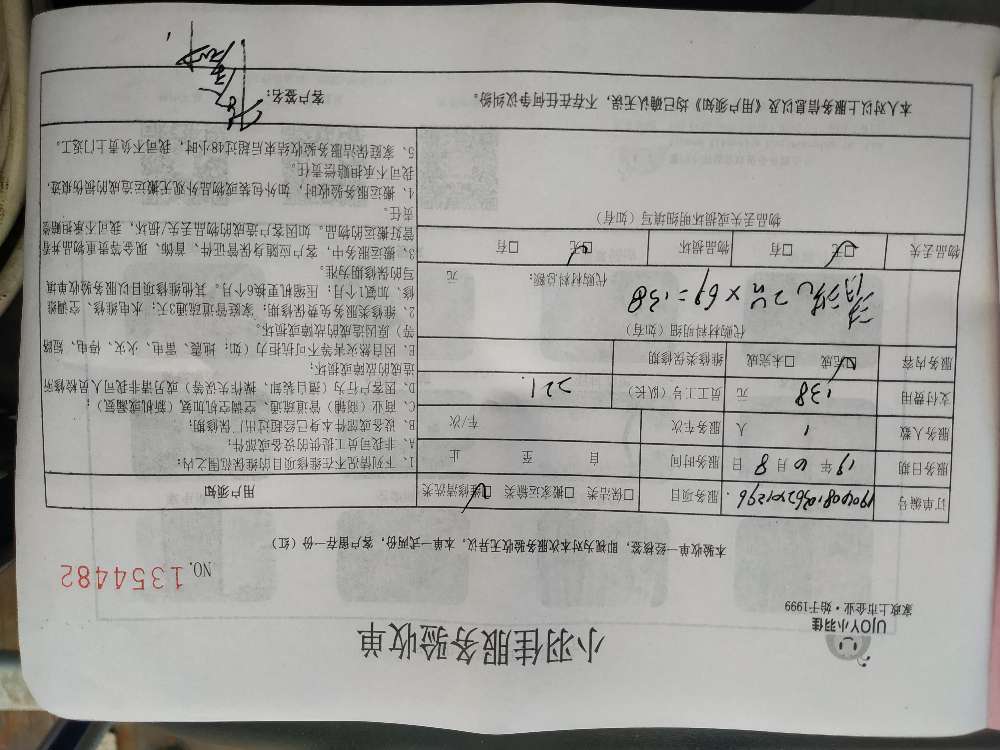 UJOY小羽佳
家政上市企业·始于1999
小羽佳服务验收单
NO. 1354482
本验收单一经核签，即视为对本次服务验收无异议，本单一式两份，客户留存一份（红）
订单编号
服务项目 □保洁类 □搬家运输类 □维修清洗类
服务日期 19 年 6 月 8 日 服务时间 自 至 止
服务人数 1 人 服务车次 车/次
支付费用 138 元 员工工号（队长） 221
服务内容 □完成 □未完成 维修类保修期
代购材料明细（如有）
清洗 2台 × 69 = 138
代购材料总额： 元
物品丢失 □无 □有 物品损坏 □无 □有
物品丢失或损坏明细填写（如有）
用户须知
1、下列情况不在维修项目的维保范围之内：
A、非我司员工提供的设备或部件；
B、设备或部件本身已经超过出厂保修期；
C、商业（商铺）管道疏通、空调空机加氟（新机或漏氟）；
D、因客户行为（逾日装卸、操作失误等）或另请非我司人员检修所
造成的故障或损坏；
E、因自然灾害等不可抗拒力（如：地震、雷电、火灾、停电、短路
等）原因造成的故障或损坏。
2、维修类服务免费保修期：家庭管道疏通3天；水电维修、空调维
修、加氟1个月；压缩机更换6个月。其他维修项目以服务验收单填
写的保修期为准。
3、搬运服务中，客户应随身保管证件、首饰、现金等贵重物品并看
管好搬运的物品。如因客户造成的物品丢失/损坏，我司不承担赔偿
责任。
4、搬运服务验收时，如外包装或物品外观无搬运造成的损伤痕迹，
我司不承担赔偿责任。
5、家庭保洁服务验收结束后超过48小时，我司不负责上门返工。
本人对以上服务信息以及《用户须知》均已确认无误，不存在任何争议纠纷。 客户签名：